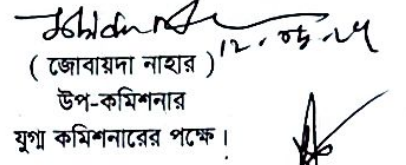 12.05.24
( জোবায়দা নাহার )
উপ-কমিশনার
যুগ্ম কমিশনারের পক্ষে।